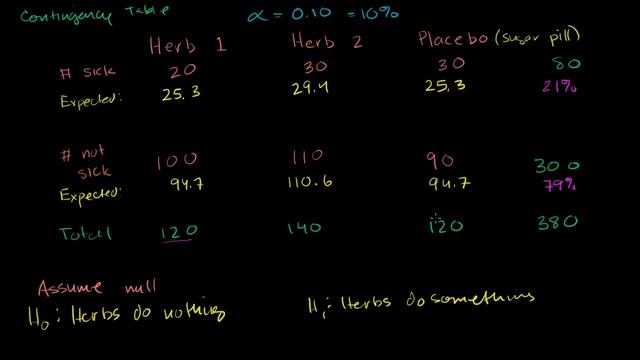 Contingency Table α = 0.10 = 10%
Herb 1 Herb 2 Placebo (sugar pill)
# sick 20 30 30 80
Expected: 25.3 29.4 25.3 21%
# not sick 100 110 90 300
Expected: 94.7 110.6 94.7 79%
Total 120 140 120 380
Assume null
H₀: Herbs do nothing H₁: Herbs do something